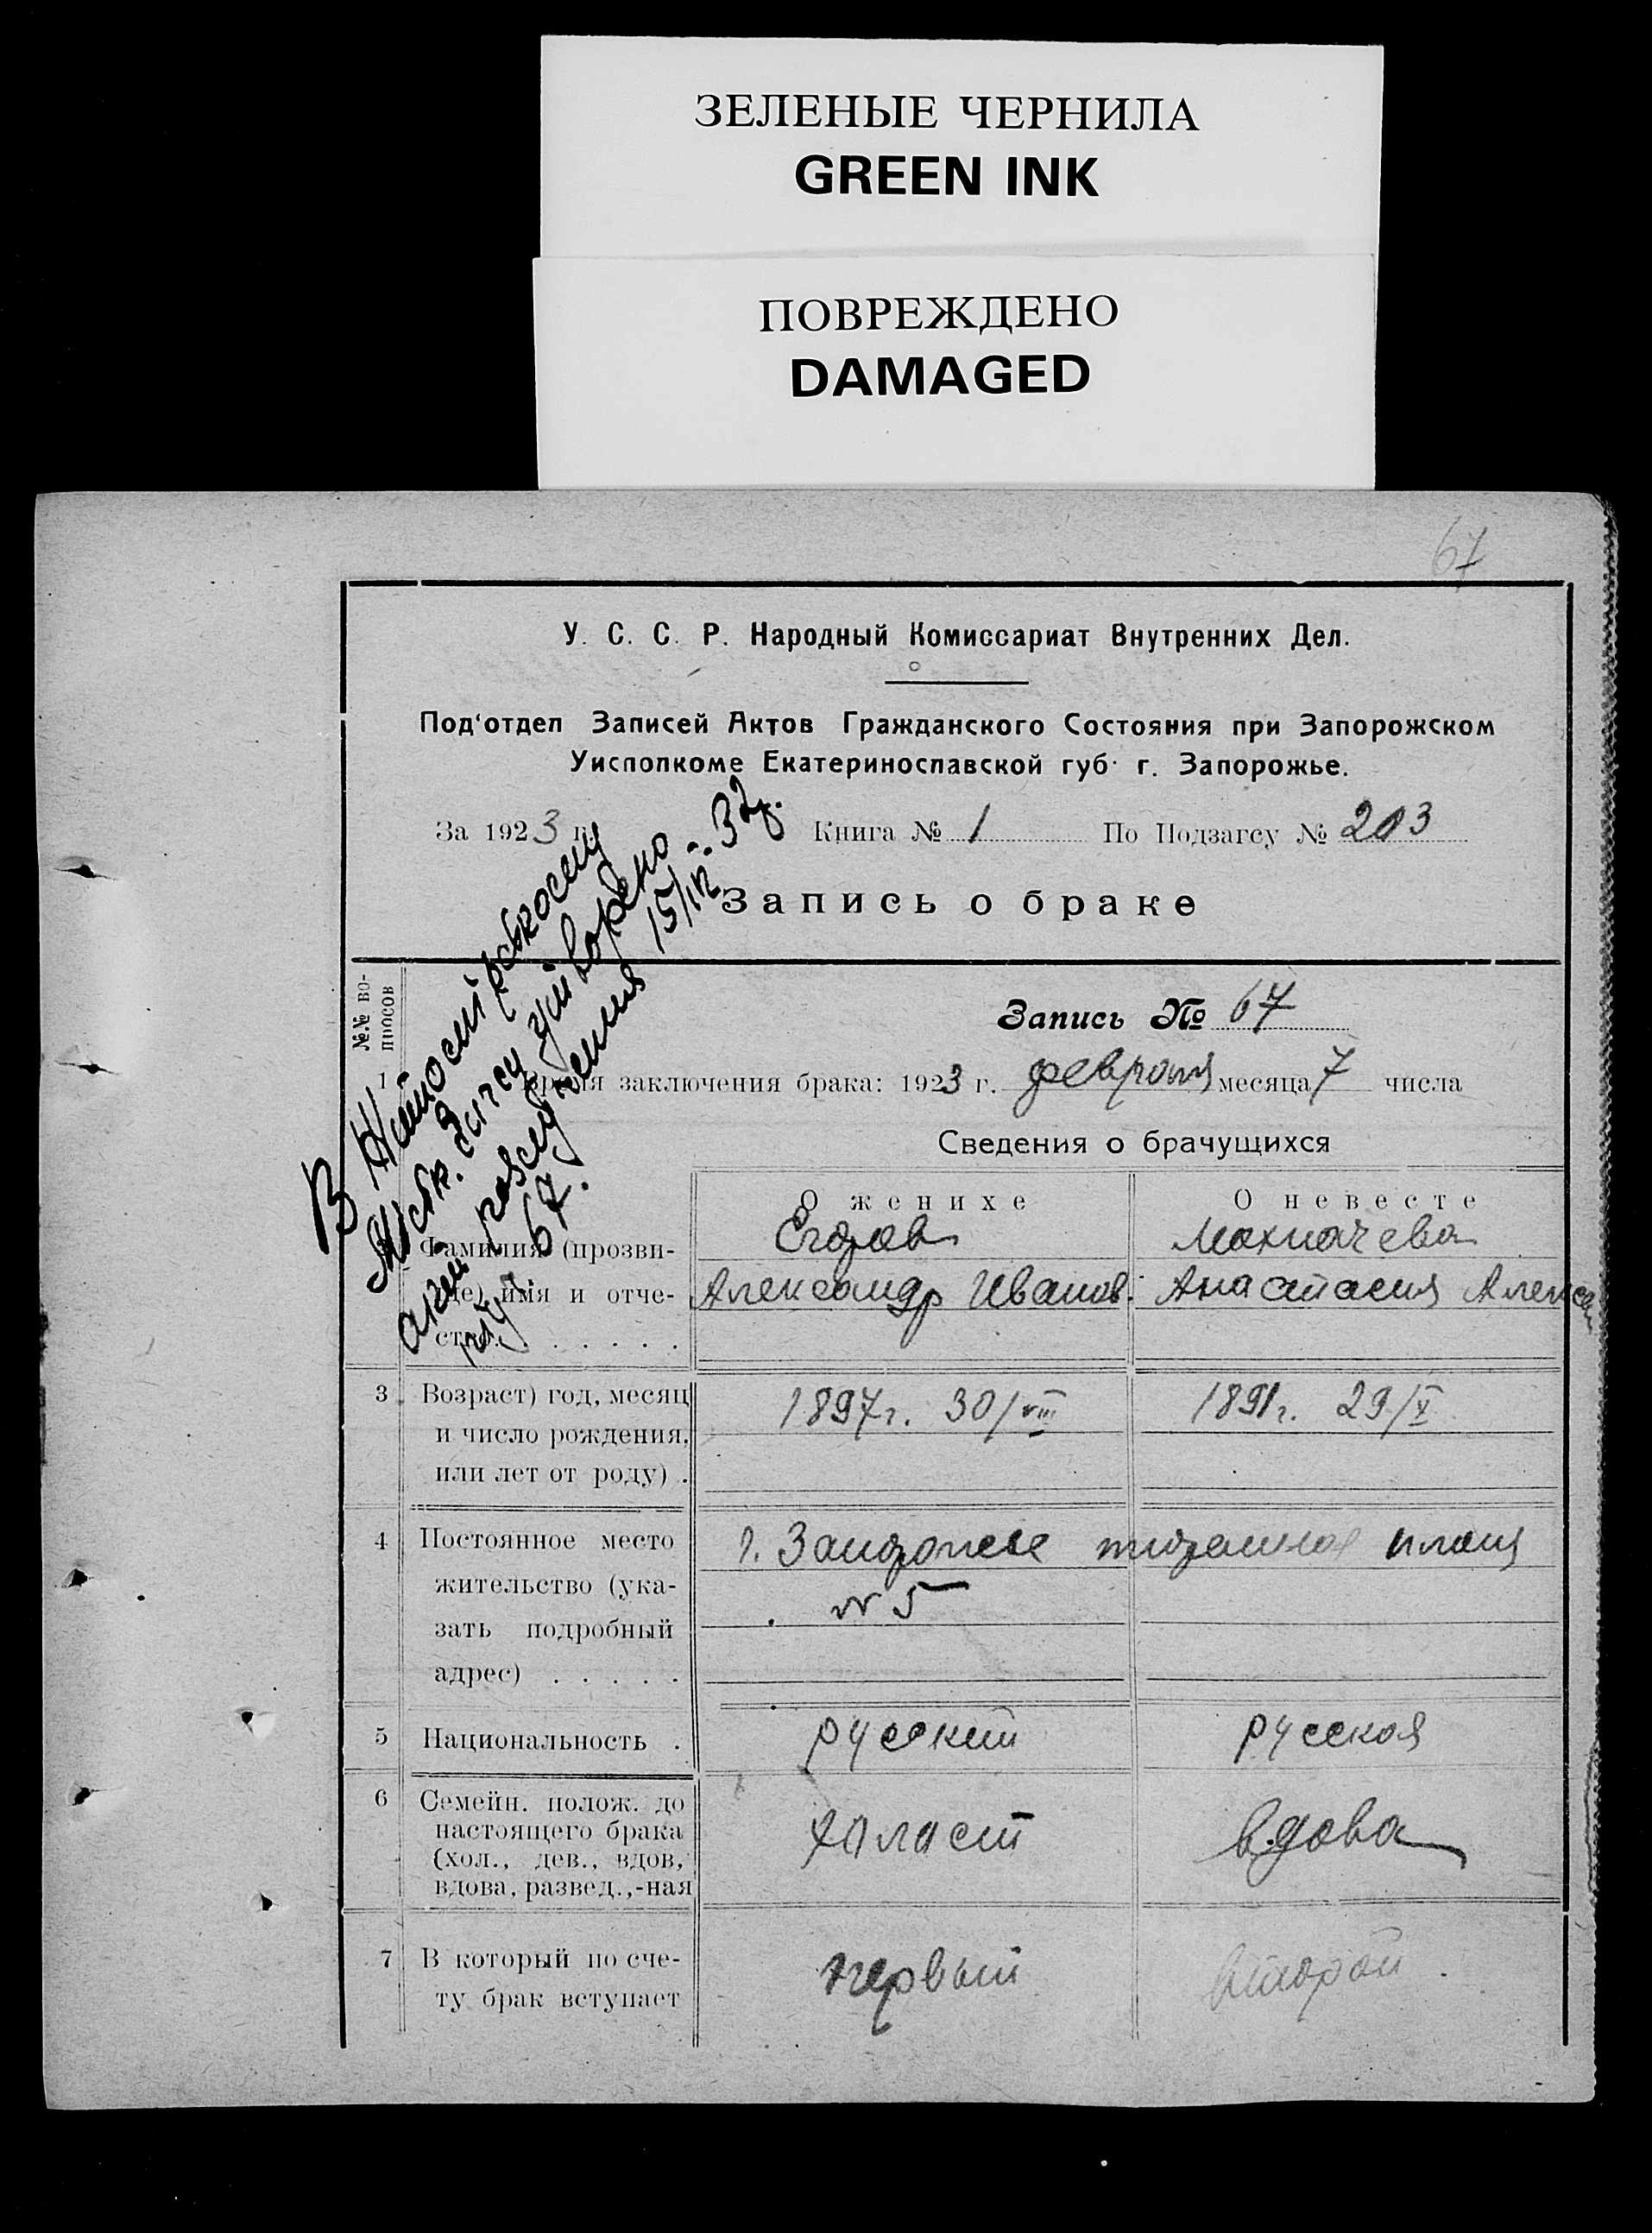 ЗЕЛЕНЫЕ ЧЕРНИЛА
GREEN INK
ПОВРЕЖДЕНО
DAMAGED
67
У. С. С. Р. Народный Комиссариат Внутренних Дел.
Под'отдел Записей Актов Гражданского Состояния при Запорожском
Уисполкоме Екатеринославской губ. г. Запорожье.
За 1923 г. Книга № 1 По Подзагсу № 203
Запись о браке
В
утворено
15/IV 32р.
67.
№№ во-
просов
Запись № 67
1 заключения брака: 1923 г. февраля месяца 7 числа
Сведения о брачущихся
О женихе О невесте
Фамилия (прозви- Егоров
имя и отче- Александр Иванов. Анастасия Алексан
3 Возраст) год, месяц 1897г. 30/VIII 1891г. 29/V
и число рождения,
или лет от роду) .
4 Постоянное место г. Запорожье площ
жительство (ука- № 5
зать подробный
адрес) . . . . .
5 Национальность . русский русская
6 Семейн. полож. до
настоящего брака холост вдова
(хол., дев., вдов,
вдова, развед.,-ная
7 В который по сче- первый второй.
ту брак вступает